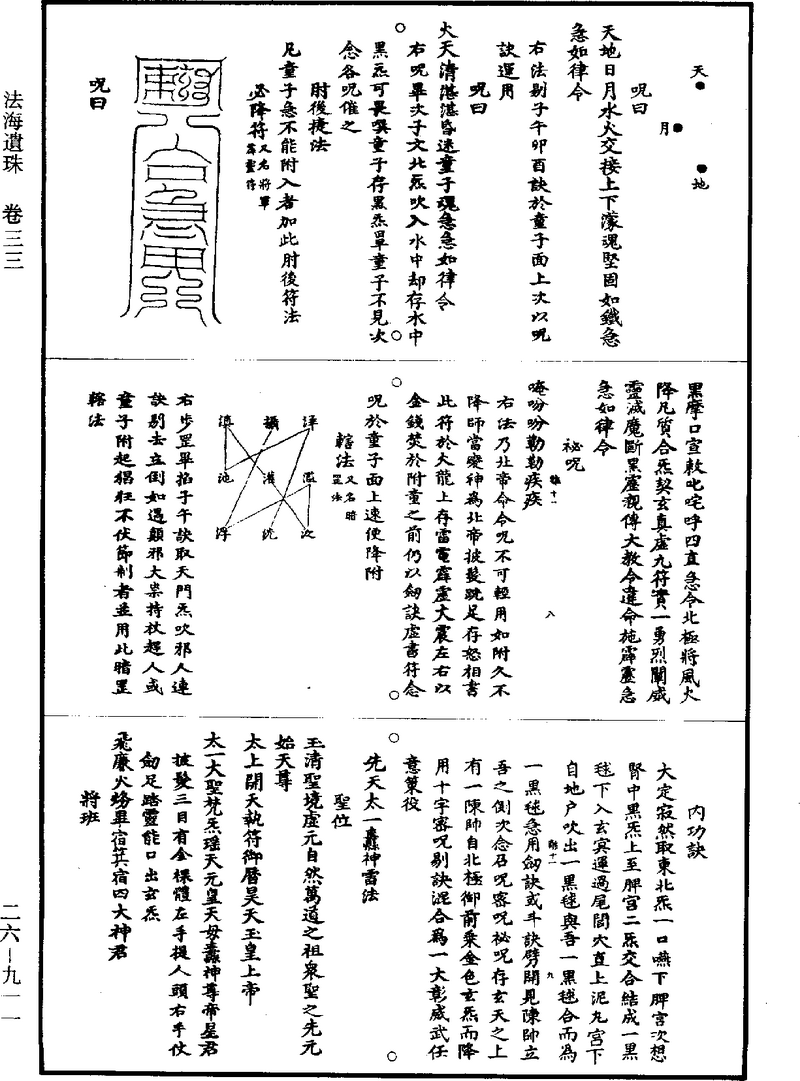 法海遺珠　卷三三
二六－九一一
天
月
地
呪曰
天地日月水火交接上下濛魂堅固如鐵急
急如律令
右法剔子午卯酉訣於童子面上次以呪
訣運用
呪曰
火天清湛湛皆迷童子魂急急如律令
右呪畢次子文北炁吹入水中却存水中
黑炁可畏噀童子存黑炁罩童子不見次
念各呪催之
肘後捷法
凡童子急不能附入者加此肘後符法
必降符又名將軍霹靂符
呪曰
黑摩口宣敕叱咤呼四直急令北極將風火
降凡質合炁契玄真虛九符實一勇烈闡威
靈滅魔斷黑靈親傳大教令違命施霹靂急
急如律令
祕呪
唵吩吩勒勒疾疾
右法乃北帝命令呪不可輕用如附久不
降師當變神為北帝披髮跣足存怒相書
此符於火龍上存雷電霹靂大震左右以
金錢焚於附童之前仍以劒訣虛書符念
呪於童子面上速使降附
轄法又名暗罡法
澤
攝
滇
濫
漢
池
次
沈
浮
右步罡畢掐子午訣取天門炁吹邪人連
訣剔去立倒如遇顛邪大祟持杖趕人或
童子附起猖狂不伏節制者並用此暗罡
轄法
內功訣
大定寂然取東北炁一口嚥下脾宮次想
腎中黑炁上至脾宮二炁交合結成一黑
毬下入玄冥運過尾閭穴直上泥丸宮下
自地戶吹出一黑毬與吾一黑毬合而為
一黑毬急用劒訣或斗訣劈開見陳帥立
吾之側次念召呪密呪祕呪存玄天之上
有一陳帥自北極御前乘金色玄炁而降
用十字密呪剔訣混合為一大彰威武任
意策役
先天太一轟神雷法
聖位
玉清聖境虛元自然萬道之祖衆聖之先元
始天尊
太上開天執符御曆昊天玉皇上帝
太一大聖梵炁瑤天元皇天母轟神尊帝星君
披髮三目有金裸體左手提人頭右手仗
劒足踏靈龍口出玄炁
飛廉火蜍畢宿箕宿四大神君
將班